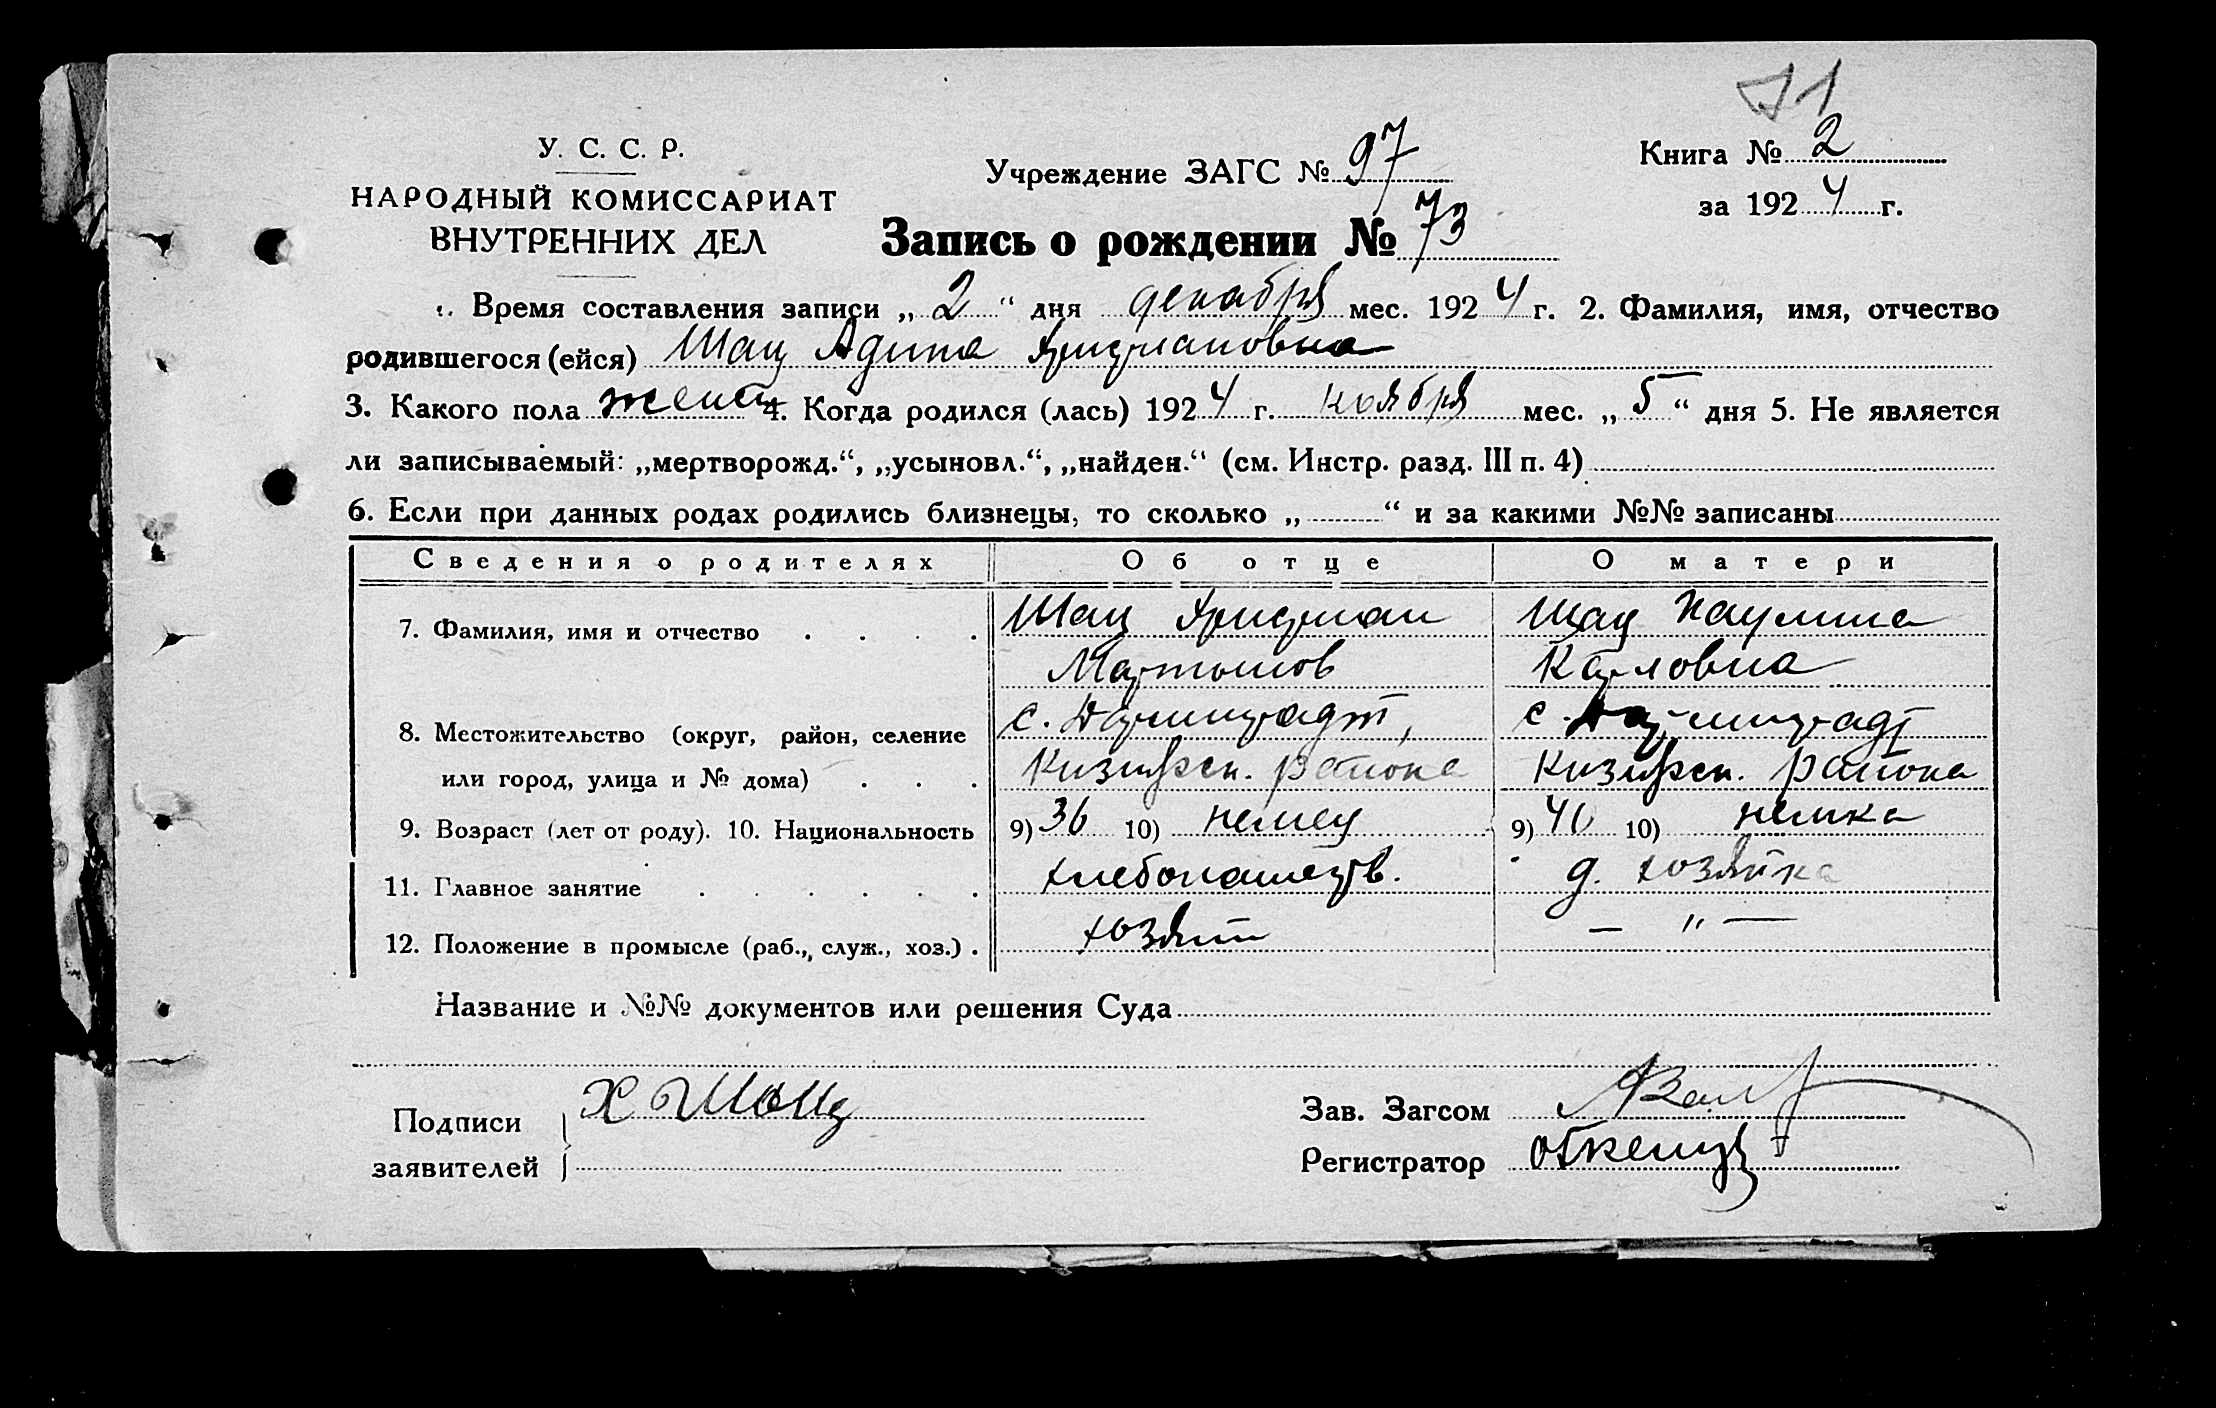 71
У. С. С. Р.
НАРОДНЫЙ КОМИССАРИАТ
ВНУТРЕННИХ ДЕЛ
Учреждение ЗАГС № 97
Книга № 2
за 1924 г.
Запись о рождении № 73
1. Время составления записи „2“ дня декабря мес. 1924 г. 2. Фамилия, имя, отчество
родившегося (ейся) Шац Адина Фридмановна
3. Какого пола женс 4. Когда родился (лась) 1924 г. ноября мес. „5“ дня 5. Не является
ли записываемый: „мертворожд.“, „усыновл.“, „найден.“ (см. Инстр. разд. III п. 4)
6. Если при данных родах родились близнецы, то сколько „ “ и за какими №№ записаны
Сведения о родителях Об отце О матери
7. Фамилия, имя и отчество Шац Фридман Шац Паулина
Мартынов Карловна
8. Местожительство (округ, район, селение с. с.
или город, улица и № дома) района района
9. Возраст (лет от роду). 10. Национальность 9) 36 10) немец 9) 40 10) немка
11. Главное занятие хлебопашеств. д. хозяйка
12. Положение в промысле (раб., служ., хоз.) хозяин — " —
Название и №№ документов или решения Суда
Подписи Х Шац
заявителей
Зав. Загсом
Регистратор